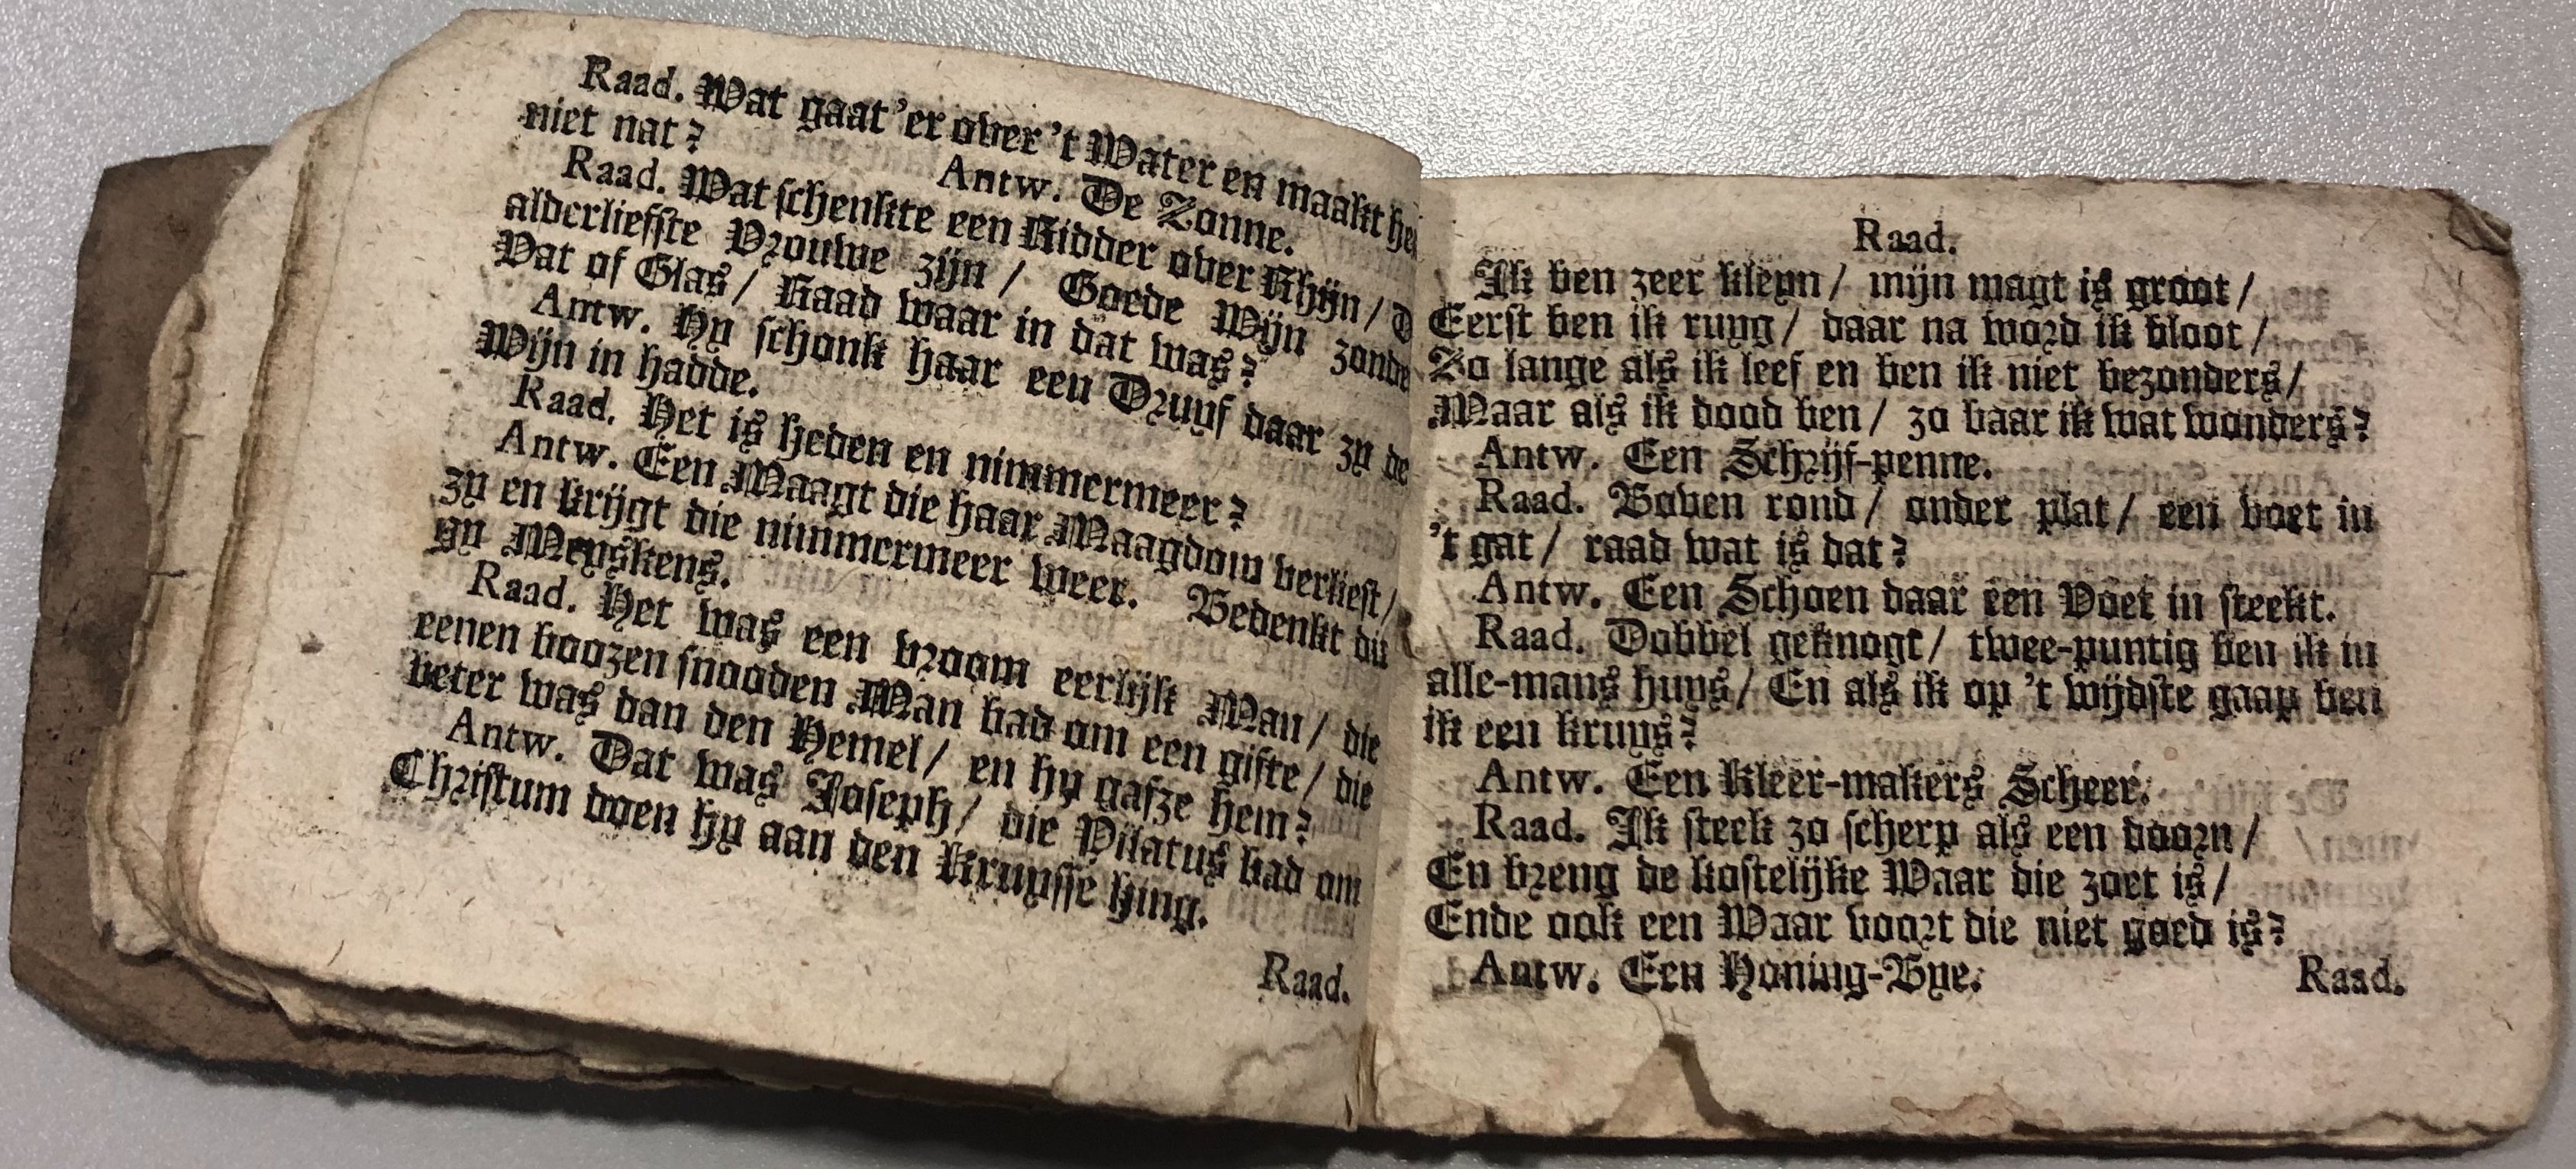 Raad. Wat gaat 'er over 't Water en maakt het
niet nat? Antw. De Zonne.
Raad. Wat schenkte een Ridder over Rhijn/
alderliefste Vrouwe zijn/ Goede Wijn zonde
Vat of Glas/ Raad waar in dat was?
Antw. Hy schonk haar een Druyf daar zy de
Wijn in hadde.
Raad. Het is heden en nimmermeer?
Antw. Een Maagt die haar Maagdom verliest/
zy en krijgt die nimmermeer weer. Bedenkt dit
gy Meyskens.
Raad. Het was een vroom eerlijk Man/ die
eenen boozen snooden Man bad om een gifte/ die
beter was dan den Hemel/ en hy gafze hem?
Antw. Dat was Joseph/ die Pilatus bad om
Christum doen hy aan den Kruysse hing.
Raad.
Raad.
Ik ben zeer kleyn/ mijn magt is groot/
Eerst ben ik ruyg/ daar na word ik bloot/
Zo lange als ik leef en ben ik niet bezonders/
Maar als ik dood ben/ zo baar ik wat wonders?
Antw. Een Schrijf-penne.
Raad. Boven rond/ onder plat/ een voet in
't gat/ raad wat is dat?
Antw. Een Schoen daar een Voet in steekt.
Raad. Dobbel geknogt/ twee-puntig ben ik in
alle-mans huys/ En als ik op 't wijdste gaap ben
ik een kruys?
Antw. Een Kleer-makers Scheer.
Raad. Ik steek zo scherp als een doorn/
En breng de kostelijke Waar die zoet is/
Ende ook een Waar voort die niet goed is?
Antw. Een Honing-Bye. Raad.